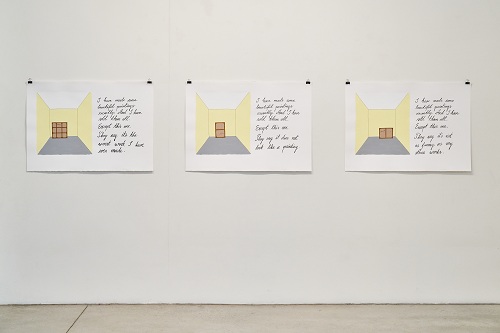 I have made some
beautiful paintings
recently And I have
sold them all.
Except this one.
They say it's the
worst work I have
ever made.
I have made some
beautiful paintings
recently And I have
sold them all.
Except this one.
They say it does not
look like a painting
I have made some
beautiful paintings
recently And I have
sold them all.
Except this one.
They say it's not
as funny as my
other works.